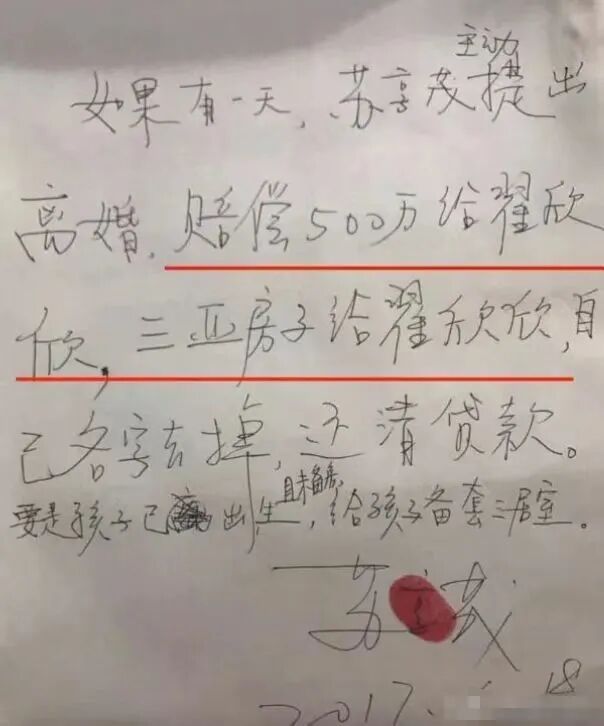 主动
如果有一天，苏享茂提出
离婚，赔偿500万给翟欣
欣，三亚房子给翟欣欣，自
己名字去掉，还清贷款。
且未备房，
要是孩子已出生，给孩子备套三居室。
苏享茂
2017.
18